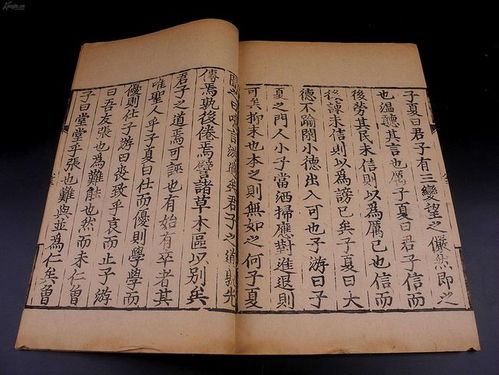 子夏曰君子有三變望之儼然即之
也溫聽其言也厲子夏曰君子信而
後勞其民未信則以為厲己也信而
後諫未信則以為謗己矣子夏曰大
德不踰閑小德出入可也子游曰子
夏之門人小子當洒掃應對進退則
可矣抑末也本之則無如之何子夏
聞之曰噫言游過矣君子之道孰先
傳焉孰後倦焉譬諸草木區以別矣
君子之道焉可誣也有始有卒者其
唯聖人乎子夏曰仕而優則學學而
優則仕子游曰喪致乎哀而止子游
曰吾友張也為難能也然而未仁曾
子曰堂堂乎張也難與並為仁矣曾